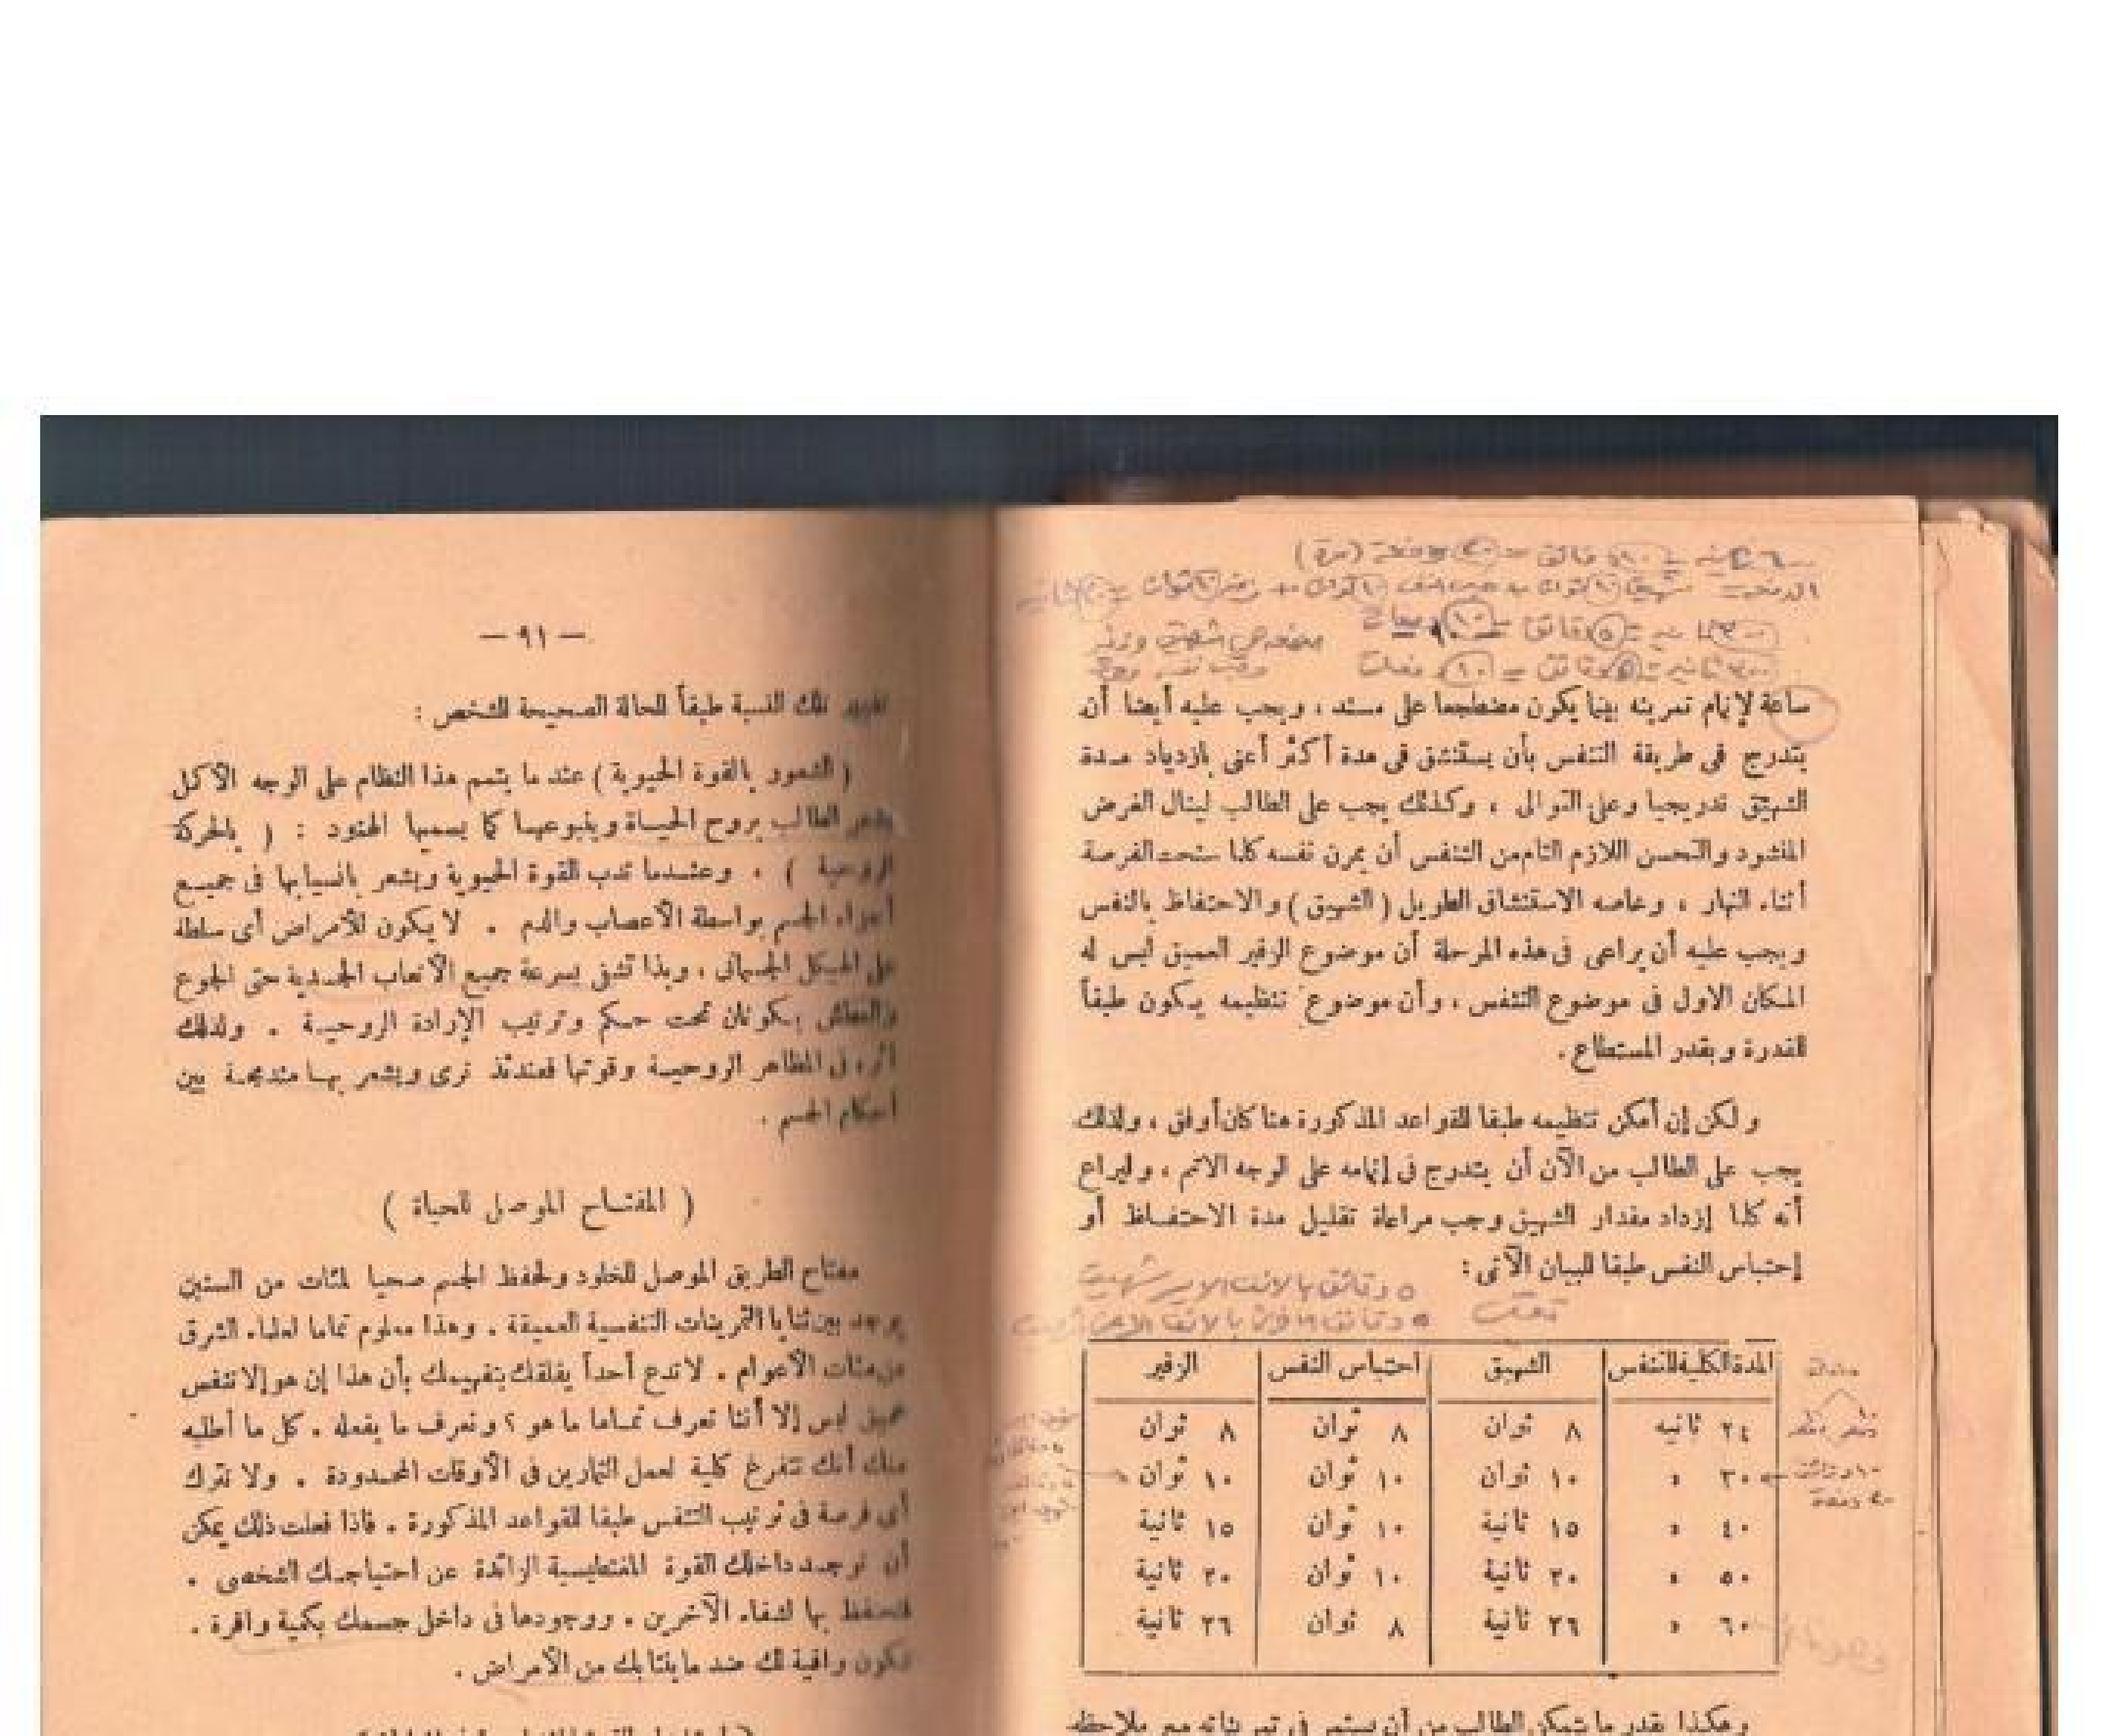 ساعة لإتمام تمرينه بينما يكون مضطجعا على مسند ، ويجب عليه أيضا أن
يتدرج فى طريقة التنفس بأن يستنشق فى مدة أكثر أعنى بازدياد مدة
الشهيق تدريجيا وعلى التوالى ، وكذلك يجب على الطالب لينال الغرض
المنشود والتحسن اللازم التام من التنفس أن يمرن نفسه كلما سنحت الفرصة
أثناء النهار ، وخاصه الاستنشاق الطويل ( الشهيق ) والاحتفاظ بالنفس
ويجب عليه أن يراعى فى هذه المرحلة أن موضوع الزفير العميق ليس له
المكان الاول فى موضوع التنفس ، وأن موضوع تنظيمه يكون طبقاً
القدرة وبقدر المستطاع .
ولكن إن أمكن تنظيمه طبقا للقواعد المذكورة هنا كان أوفق ، ولذلك
يجب على الطالب من الآن أن يتدرج فى إتمامه على الوجه الاتم ، وليراع
أنه كلما إزداد مقدار الشهيق وجب مراعاة تقليل مدة الاحتفاظ أو
إحتباس النفس طبقا للبيان الآتى :
المدة الكلية للتنفس الشهيق احتباس النفس الزفير
٢٤ ثانيه ٨ ثوان ٨ ثوان ٨ ثوان
٣٠ » ١٠ ثوان ١٠ ثوان ١٠ ثوان
٤٠ » ١٥ ثانية ١٠ ثوان ١٥ ثانية
٥٠ » ٢٠ ثانية ١٠ ثوان ٢٠ ثانية
٦٠ » ٢٦ ثانية ٨ ثوان ٢٦ ثانية
وهكذا بقدر ما يتمكن الطالب من أن يستمر فى تمريناته مع ملاحظة
— ٩١ —
تلك النسبة طبقاً للحالة الصحيحة للشخص :
( الشعور بالقوة الحيوية ) عند ما يتمم هذا النظام على الوجه الأكمل
يشعر الطالب بروح الحياة وينبوعها كما يسميها الهنود : ( بالحركة
الروحية ) . وعندما تدب القوة الحيوية ويشعر بانسيابها فى جميع
أجزاء الجسم بواسطة الأعصاب والدم . لا يكون للأمراض أى سلطة
على الهيكل الجسمانى ، وبذا تشفى بسرعة جميع الأتعاب الجسدية حتى الجوع
والعطش يكونان تحت حكم وترتيب الإرادة الروحية . ولذلك
أثره فى المظاهر الروحية وقوتها فعندئذ نرى ويشعر بها مندمجة بين
أحكام الجسم .
( المفتاح الموصل للحياة )
مفتاح الطريق الموصل للخلود ولحفظ الجسم صحيا لمئات من السنين
يوجد بين ثنايا التمرينات التنفسية العميقة . وهذا معلوم تماما لعلماء الشرق
من مئات الأعوام . لا تدع أحداً يقلقك بتفهيمك بأن هذا إن هو إلا تنفس
عميق ليس إلا أننا نعرف تماما ما هو ؟ ونعرف ما يفعله . كل ما أطلبه
منك أنك تتفرغ كلية لعمل التمارين فى الأوقات المحدودة . ولا تترك
أى فرصة فى ترتيب التنفس طبقا للقواعد المذكورة . فاذا فعلت ذلك يمكن
أن توجد داخلك القوة المغنطيسية الزائدة عن احتياجك الشخصى .
فتحتفظ بها لشفاء الآخرين . ووجودها فى داخل جسمك بكمية وافرة .
تكون واقية لك ضد ما ينتابك من الأمراض .